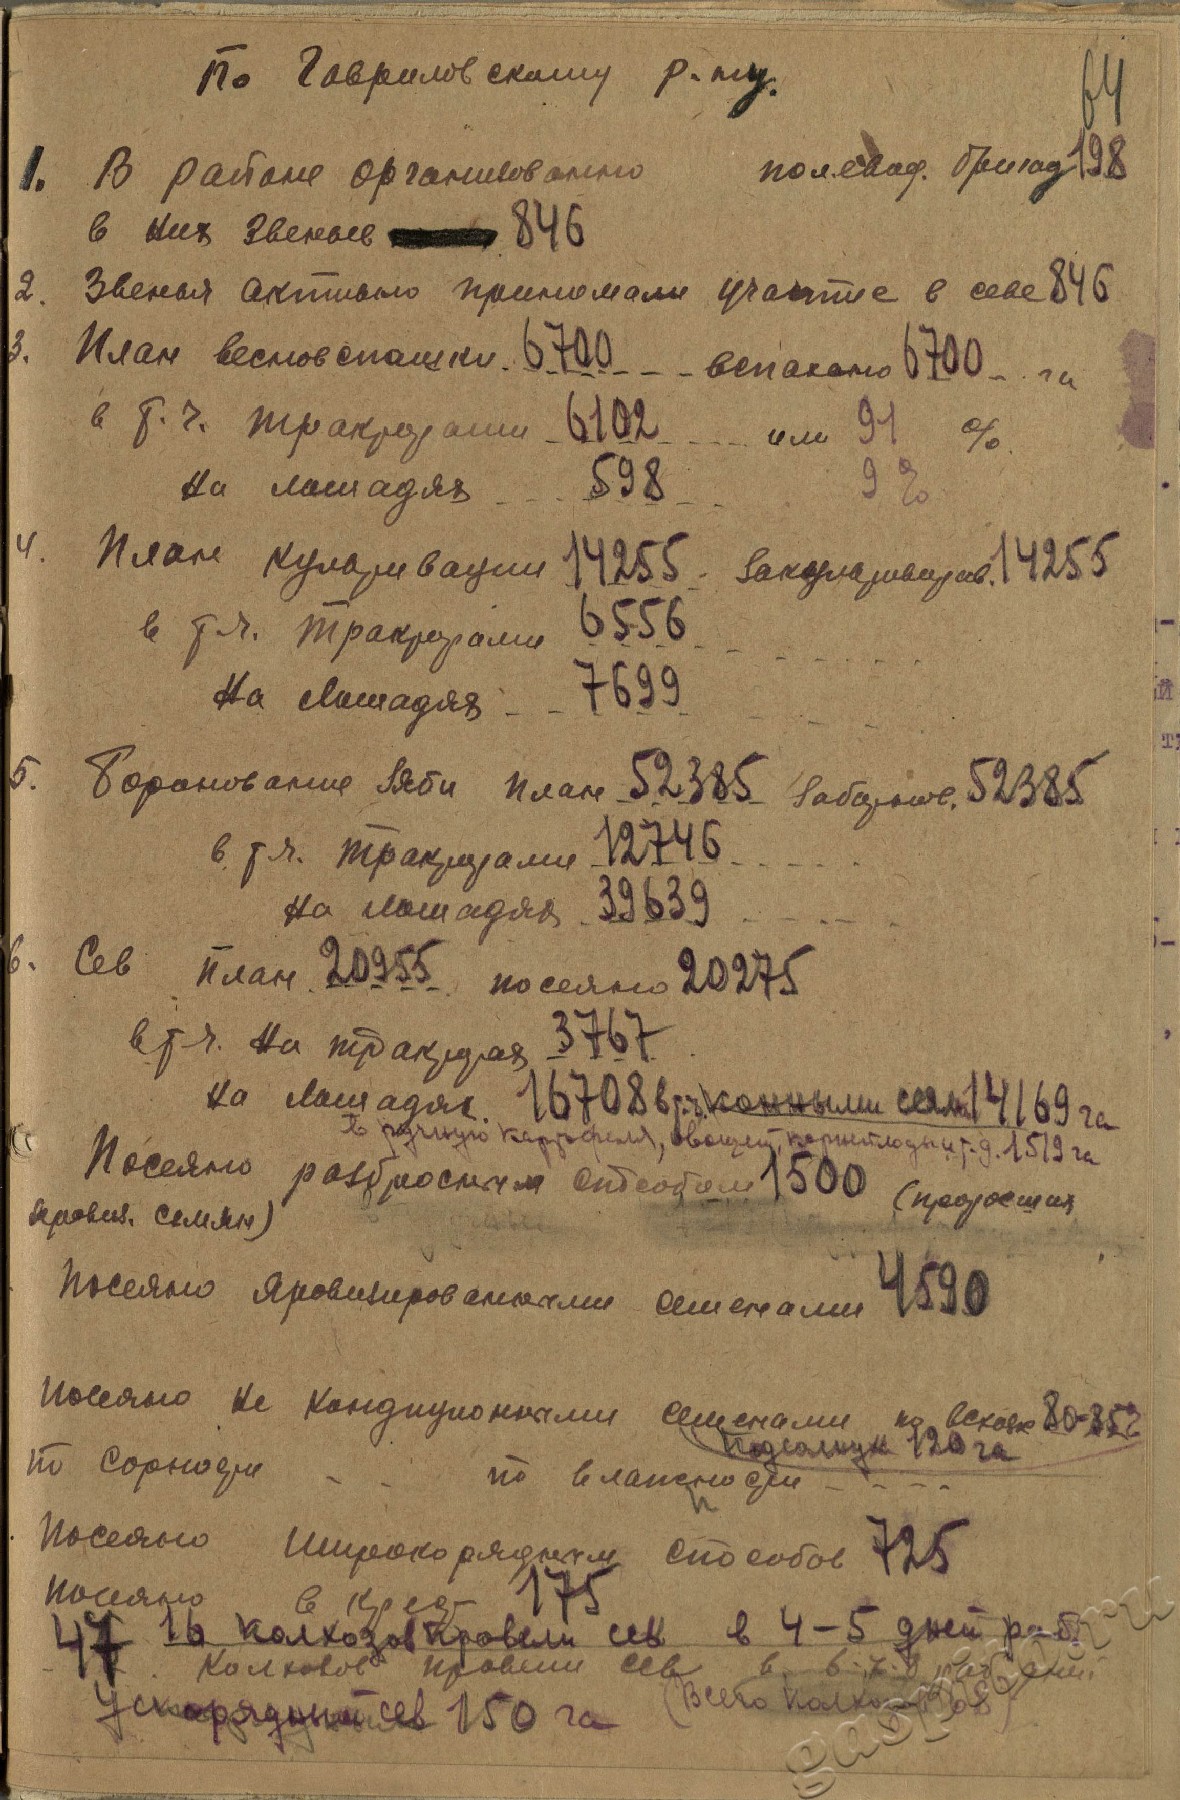 64
По Гавриловскому р-ну.
1. В районе организованно полевод. бригад 198
в них звеньев 846
2. Звенья активно принимали участие в севе 846
3. План весновспашки 6700 вспахано 6700 га
в т.ч. тракторами 6102 или 91 %
на лошадях 598 9 %
4. План культивации 14255 Закультивиров. 14255
в т.ч. тракторами 6556
на лошадях 7699
5. Боронование зяби план 52385 Заборонов. 52385
в т.ч. тракторами 12746
на лошадях 39639
6. Сев план 20955 посеяно 20275
в т.ч. на тракторах 3767
на лошадях. 16708 в т.ч. конными сеял. 14169 га
в ручную картофеля, овощей, корнеплоды и т.д. 1519 га
Посеяно разбросным способом 1500 (проросших
яровиз. семян)
Посеяно яровизированными семенами 4590
Посеяно не кондиционными семенами по всхож 80-85%
подсолнук 120 га
по сорности по влажности
Посеяно широкорядным способов 725
Посеяно в крест 175
47 16 колхозов провели сев в 4-5 дней раб
колхозов провели сев в 6-7-8 раб дней
Ускорядный сев 150 га (всего колхозов 68)
gaspito.ru